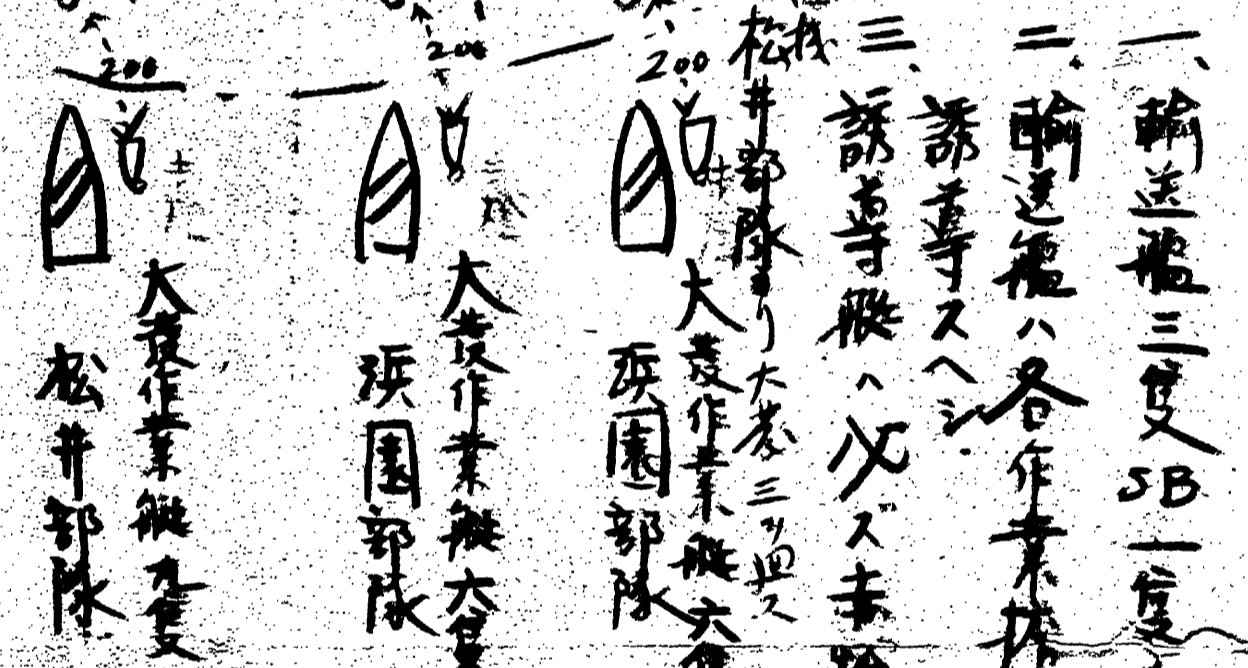 一、輸送艦三隻SB一隻
二、輸送艦ハ各作業
誘導スヘシ
三、誘導艇ハ必ズ赤
松井部隊ヨリ大発三ツ廻ス
200
大発作業艇六隻
浜園部隊
200
大発作業艇六隻
浜園部隊
200
大発作業艇九隻
松井部隊